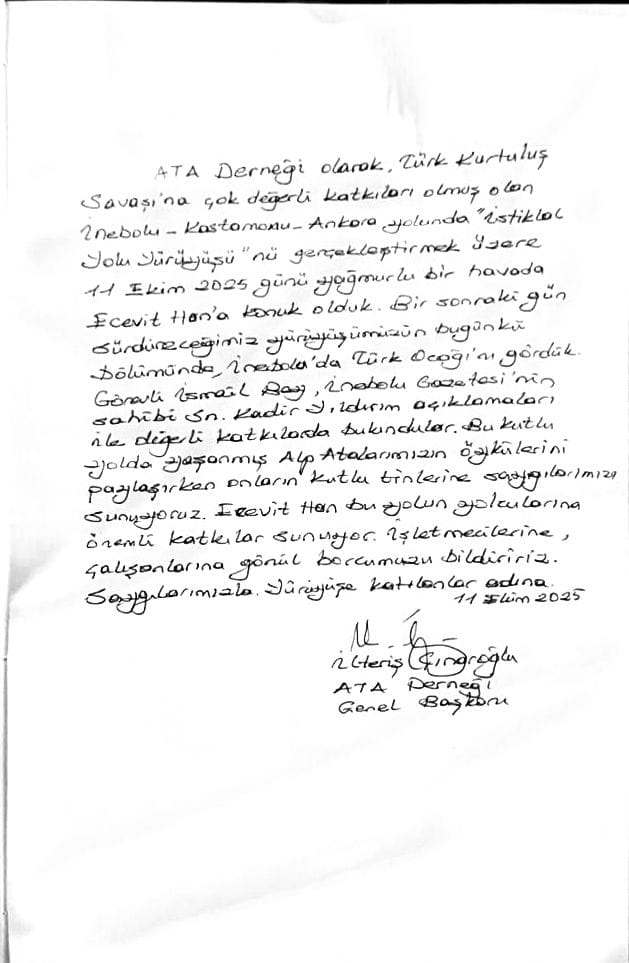 ATA Derneği olarak, Türk Kurtuluş
Savaşı'na çok değerli katkıları olmuş olan
İnebolu - Kastamonu - Ankara yolunda "İstiklal
Yolu Yürüyüşü"nü gerçekleştirmek üzere
11 Ekim 2025 günü yağmurlu bir havada
Ecevit Han'a konuk olduk. Bir sonraki gün
sürdüreceğimiz yürüyüşümüzün bugünkü
bölümünde, İnebolu'da Türk Ocağı'nı gördük.
Görevli İsmail Bay, İnebolu Gazetesi'nin
sahibi Sn. Kadir Yıldırım açıklamaları
ile değerli katkılarda bulundular. Bu kutlu
yolda yaşanmış Alp Atalarımızın öykülerini
paylaşırken onların kutlu tinlerine saygılarımızı
sunuyoruz. Ecevit Han bu yolun yolcularına
önemli katkılar sunuyor. İşletmecilerine,
çalışanlarına gönül borcumuzu bildiririz.
Saygılarımızla. Yürüyüşe katılanlar adına.
11 Ekim 2025
İlteriş Çıngıroğlu
ATA Derneği
Genel Başkanı